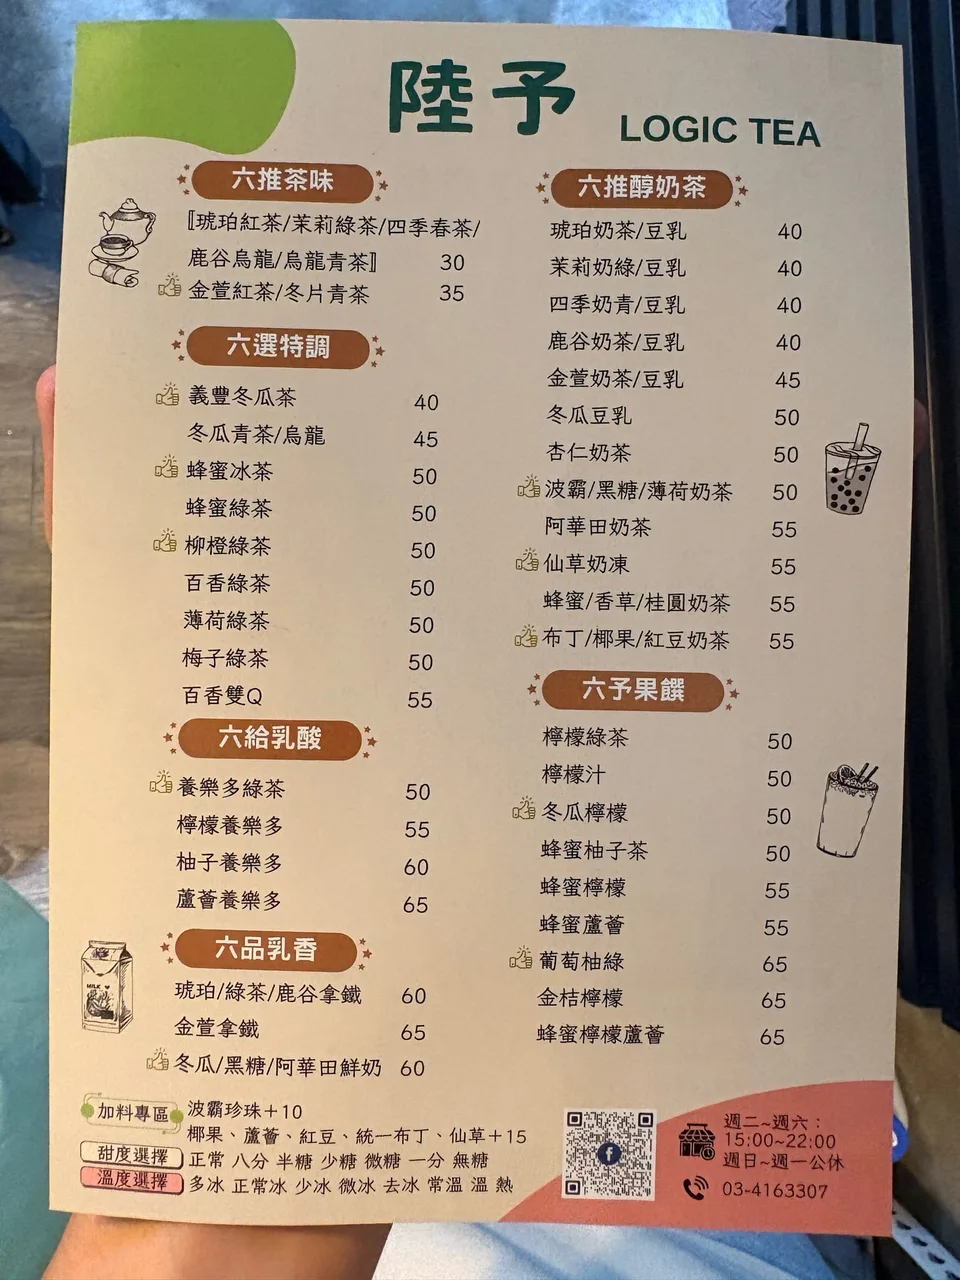 陸予 LOGIC TEA
六推茶味
〖琥珀紅茶/茉莉綠茶/四季春茶/
鹿谷烏龍/烏龍青茶〗 30
金萱紅茶/冬片青茶 35
六選特調
義豐冬瓜茶 40
冬瓜青茶/烏龍 45
蜂蜜冰茶 50
蜂蜜綠茶 50
柳橙綠茶 50
百香綠茶 50
薄荷綠茶 50
梅子綠茶 50
百香雙Q 55
六給乳酸
養樂多綠茶 50
檸檬養樂多 55
柚子養樂多 60
蘆薈養樂多 65
六品乳香
琥珀/綠茶/鹿谷拿鐵 60
金萱拿鐵 65
冬瓜/黑糖/阿華田鮮奶 60
六推醇奶茶
琥珀奶茶/豆乳 40
茉莉奶綠/豆乳 40
四季奶青/豆乳 40
鹿谷奶茶/豆乳 40
金萱奶茶/豆乳 45
冬瓜豆乳 50
杏仁奶茶 50
波霸/黑糖/薄荷奶茶 50
阿華田奶茶 55
仙草奶凍 55
蜂蜜/香草/桂圓奶茶 55
布丁/椰果/紅豆奶茶 55
六予果饌
檸檬綠茶 50
檸檬汁 50
冬瓜檸檬 50
蜂蜜柚子茶 50
蜂蜜檸檬 55
蜂蜜蘆薈 55
葡萄柚綠 65
金桔檸檬 65
蜂蜜檸檬蘆薈 65
MILK
加料專區 波霸珍珠+10
椰果、蘆薈、紅豆、統一布丁、仙草+15
甜度選擇 正常 八分 半糖 少糖 微糖 一分 無糖
溫度選擇 多冰 正常冰 少冰 微冰 去冰 常溫 溫 熱
週二~週六：
15:00~22:00
週日~週一公休
03-4163307